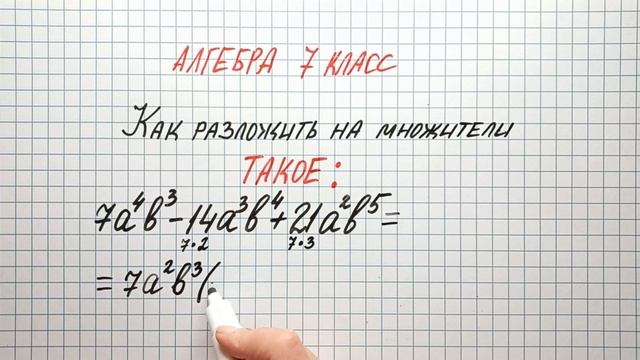 АЛГЕБРА 7 КЛАСС
КАК РАЗЛОЖИТЬ НА МНОЖИТЕЛИ
ТАКОЕ:
7a⁴b³-14a³b⁴+21a²b⁵=
7·2 7·3
=7a²b³(